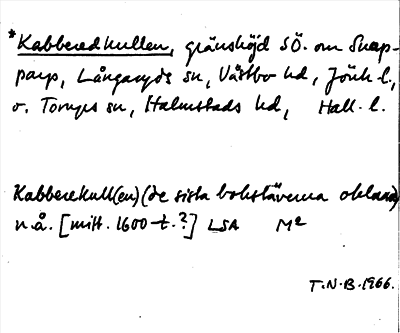 *Kabberedkullen, gränshöjd SÖ. om Snap-
parp, Långaryds sn, Västbo hd, Jönk. l.,
o. Torups sn, Halmstads hd, Hall. l.
Kabberekull(en) (de sista bokstäverna oklara)
n.å. [mitt. 1600-t.?] LSA M²
T.N.B. 1966.